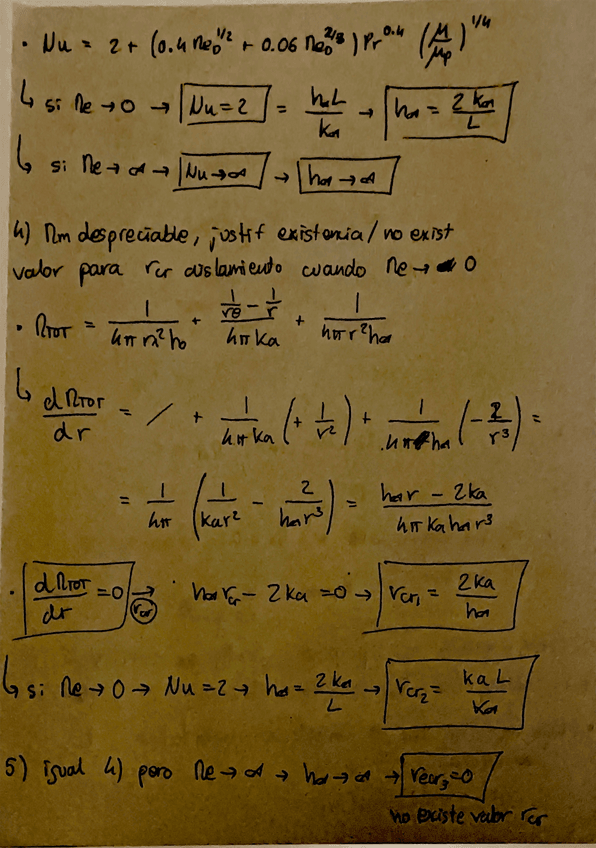 • Nu = 2 + (0.4 Re_D^1/2 + 0.06 Re_D^2/3) Pr^0.4 (μ/μp)^1/4
↳ si Re → 0 → Nu = 2 = h∞L/k∞ → h∞ = 2k∞/L
↳ si Re → ∞ → Nu → ∞ → h∞ → ∞
4) Rm despreciable, justif existencia / no exist
valor para rcr aislamiento cuando Re → 0
• RTOT = 1/(4π r1² h0) + (1/rB - 1/r)/(4π ka) + 1/(4π r² h∞)
↳ dRTOT/dr = / + 1/(4π ka) (+ 1/r²) + 1/(4π h∞) (- 2/r³) =
= 1/4π (1/(ka r²) - 2/(h∞ r³)) = (h∞ r - 2ka)/(4π ka h∞ r³)
• dRTOT/dr = 0 → rcr h∞ rcr - 2ka = 0 → rcr1 = 2ka/h∞
↳ si Re → 0 → Nu = 2 → h∞ = 2k∞/L → rcr2 = ka L/k∞
5) igual 4) pero Re → ∞ → h∞ → ∞ → recr3 = 0
no existe valor rcr